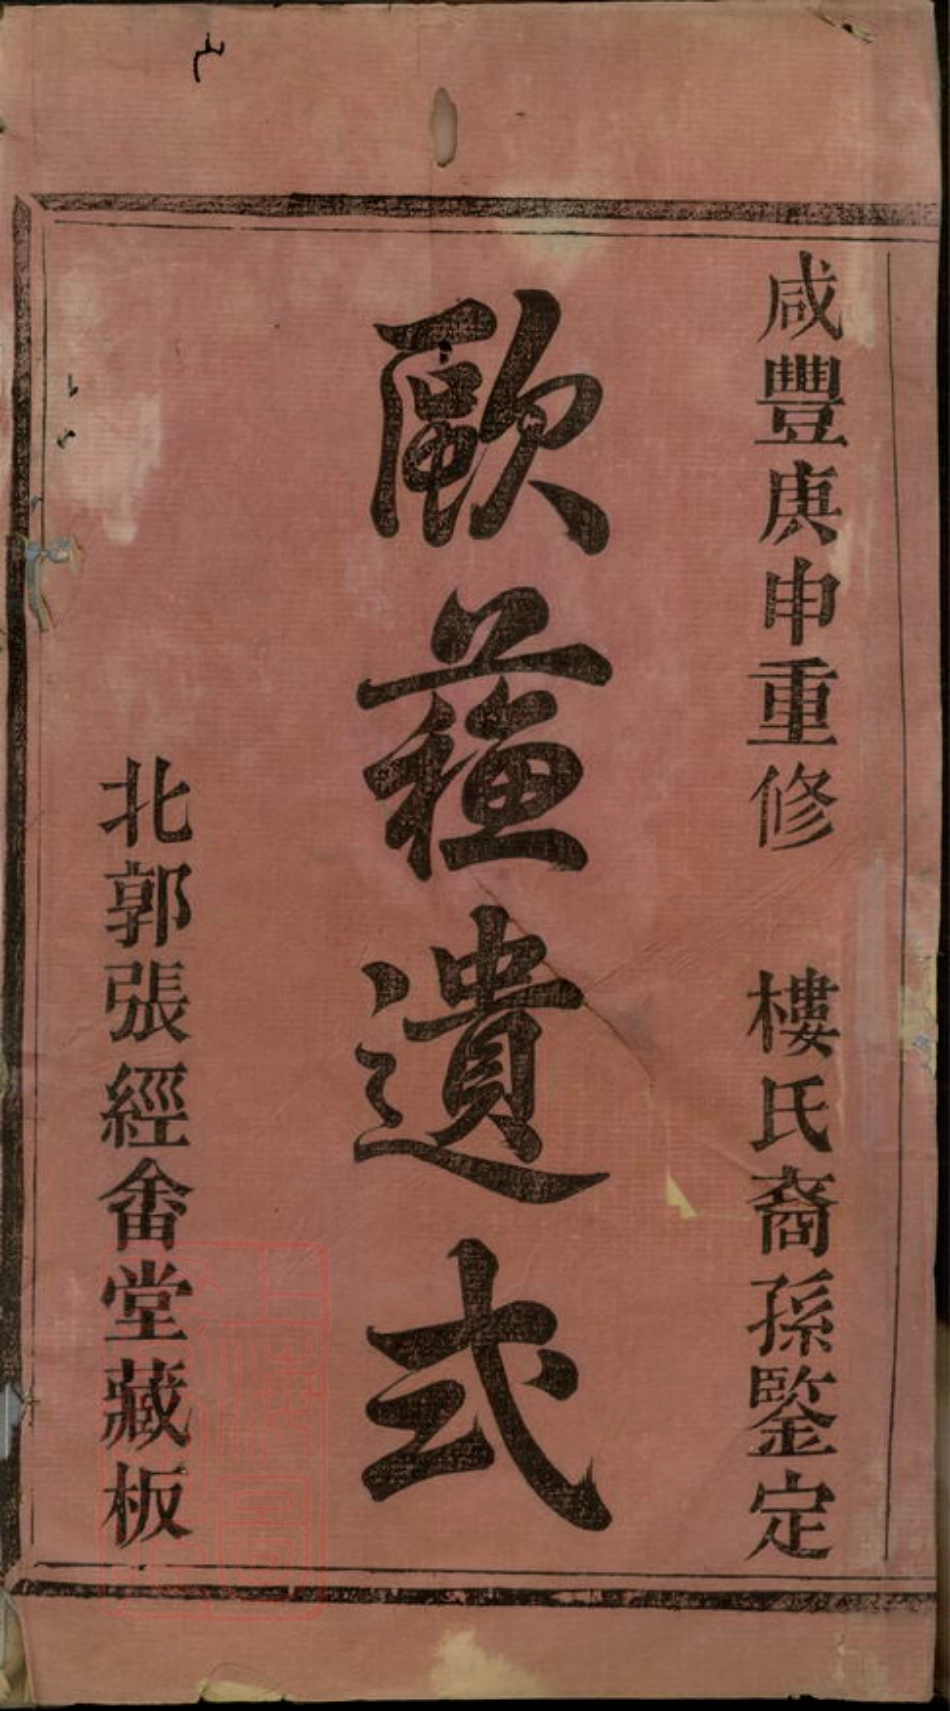 咸豐庚申重修　樓氏裔孫鍳定
歐蘓遺式
北郭張經畬堂藏板